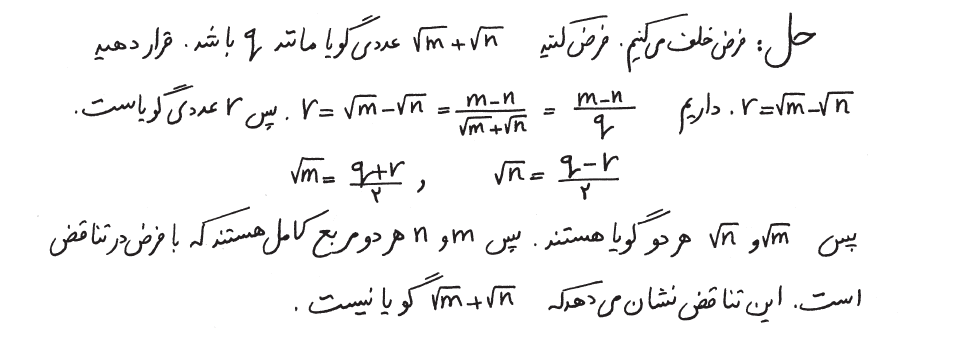 حل: فرض خلف می‌کنیم. فرض کنید √m+√n عددی گویا مانند q باشد. قرار دهید
r=√m-√n. داریم r = √m-√n = (m-n)/(√m+√n) = (m-n)/q. پس r عددی گویاست.
√m = (q+r)/۲ , √n = (q-r)/۲
پس √m و √n هر دو گویا هستند. پس m و n هر دو مربع کامل هستند که با فرض در تناقض
است. این تناقض نشان می‌دهد که √m+√n گویا نیست.